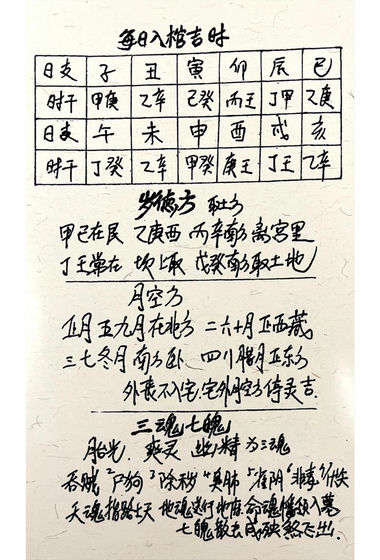 每日入棺吉时
日支 子 丑 寅 卯 辰 巳
时干 甲庚 乙辛 己癸 丙壬 丁甲 乙庚
日支 午 未 申 酉 戌 亥
时干 丁癸 乙辛 甲癸 庚壬 丁壬 乙辛
岁德方 取土方
甲己在艮 乙庚西 丙辛南方离宫里
丁壬常在 坎上取 戊癸南方取土地
月空方
正月五九月在北方 二六十月正西藏
三七冬月南方卧 四八腊月正东方
外丧不入宅,宅外月空方停灵吉.
三魂七魄
胎光. 爽灵 幽精为三魂
吞贼 2尸狗 3除秽 4臭肺 5雀阴 6非毒 7伏矢
天魂指路上天 地魂送付地府 命魂随
七魄散去成殃煞飞出.